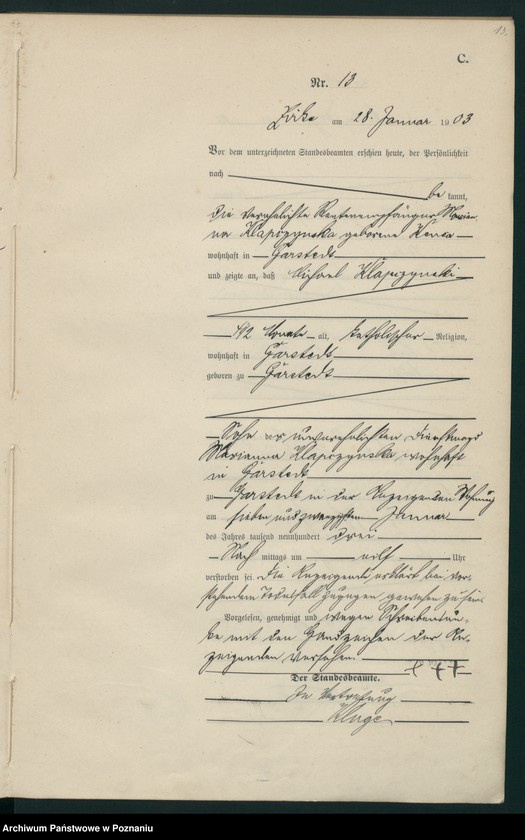 13.
C.
Nr. 13
Zirke am 28. Januar 1903
Vor dem unterzeichneten Standesbeamten erschien heute, der Persönlichkeit
nach
be kannt,
die verehelichte Rentenempfänger Marian
na Klapczynska geborene
wohnhaft in Garstedt
und zeigte an, daß Michael Klapczynski
4 1/2 Monate alt, katholischer Religion,
wohnhaft in Garstedt
geboren zu Garstedt
Sohn der unverehelichten Dienstmagd
Marianna Klapczynska wohnhaft
in Garstedt
zu Garstedt in der Anzeigenden Wohnung
am sieben und zwanzigsten Januar
des Jahres tausend neunhundert drei
Nach mittags um elf Uhr
verstorben sei. Die Anzeigende erklärt bei vor
stehendem Todesfall zugegen gewesen zu sein
Vorgelesen, genehmigt und wegen Schreibensun-
de mit den Handzeichen der An-
zeigenden versehen.
+++
Der Standesbeamte.
In Vertretung
Kluge
Archiwum Państwowe w Poznaniu